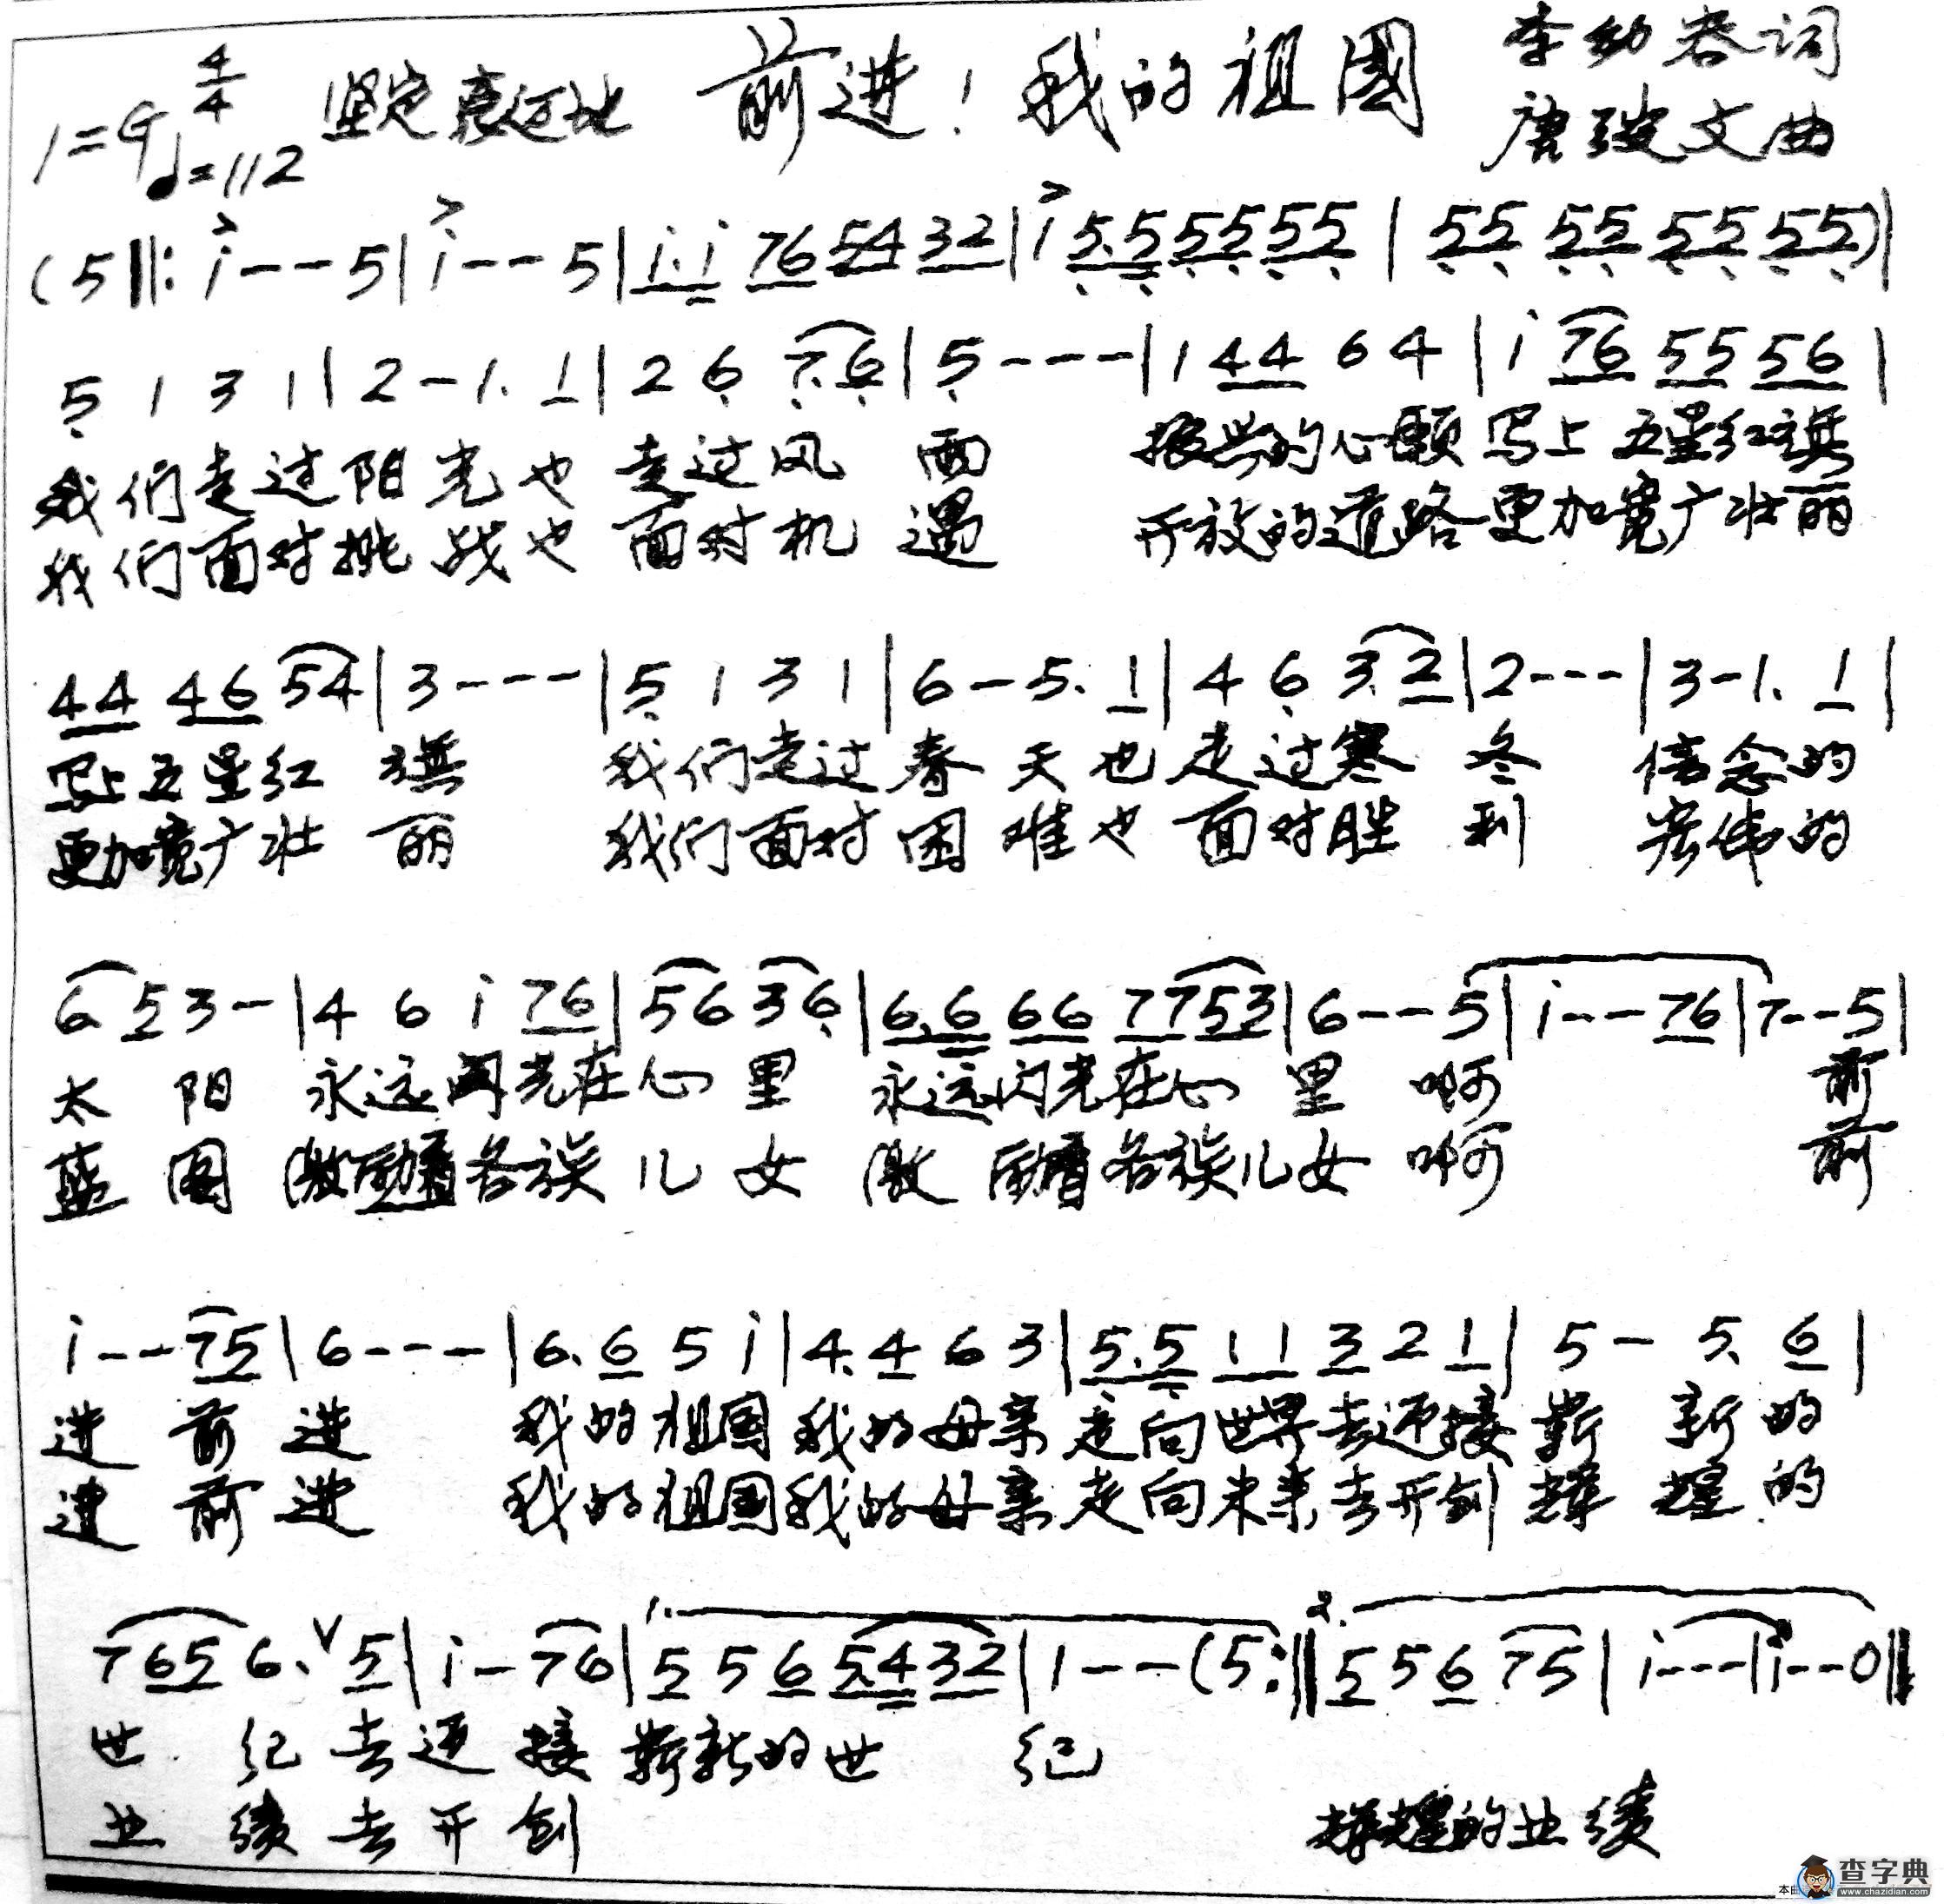 前进！我的祖国
李幼容词
1=G 4/4 ♩=112 坚定豪迈地
唐璧文曲
(5‖: i - - 5 | i - - 5 | i. i 76 54 32 | i 5.5 55 55 | 55 55 55 55) |
5 1 3 1 | 2 - 1. 1 | 2 6 7.6 | 5 - - - | 1 44 6 4 | i 76 55 56 |
我们走过阳光也走过风雨 振兴的心愿写上五星红旗
我们面对挑战也面对机遇 开放的道路更加宽广壮丽
44 46 54 | 3 - - - | 5 1 3 1 | 6 - 5. 1 | 4 6 3.2 | 2 - - - | 3 - 1. 1 |
写上五星红旗 我们走过春天也走过寒冬 信念的
更加宽广壮丽 我们面对困难也面对胜利 宏伟的
6. 5 3 - | 4 6 i 76 | 56 36 | 6.6 66 77 53 | 6 - - 5 | i - - 76 | 7 - - 5 |
太阳 永远闪光在心里 永远闪光在心里 啊 前
蓝图 激励着各族儿女 激励着各族儿女 啊 前
i - - 75 | 6 - - - | 6. 6 5 i | 4. 4 6 3 | 5.5 11 3 2 1 | 5 - 5. 6 |
进 前进 我的祖国我的母亲走向世界去迎接崭新的
进 前进 我的祖国我的母亲走向未来去开创辉煌的
7 65 6. V 5 | i - 76 | 1. 5 5 6 5.4 32 | 1 - - (5 :‖ 2. 5 5 6 75 | i - - - | i - - 0 ‖
世纪去迎接崭新的世纪
业绩去开创 辉煌的业绩
查字典
www.chazidian.com